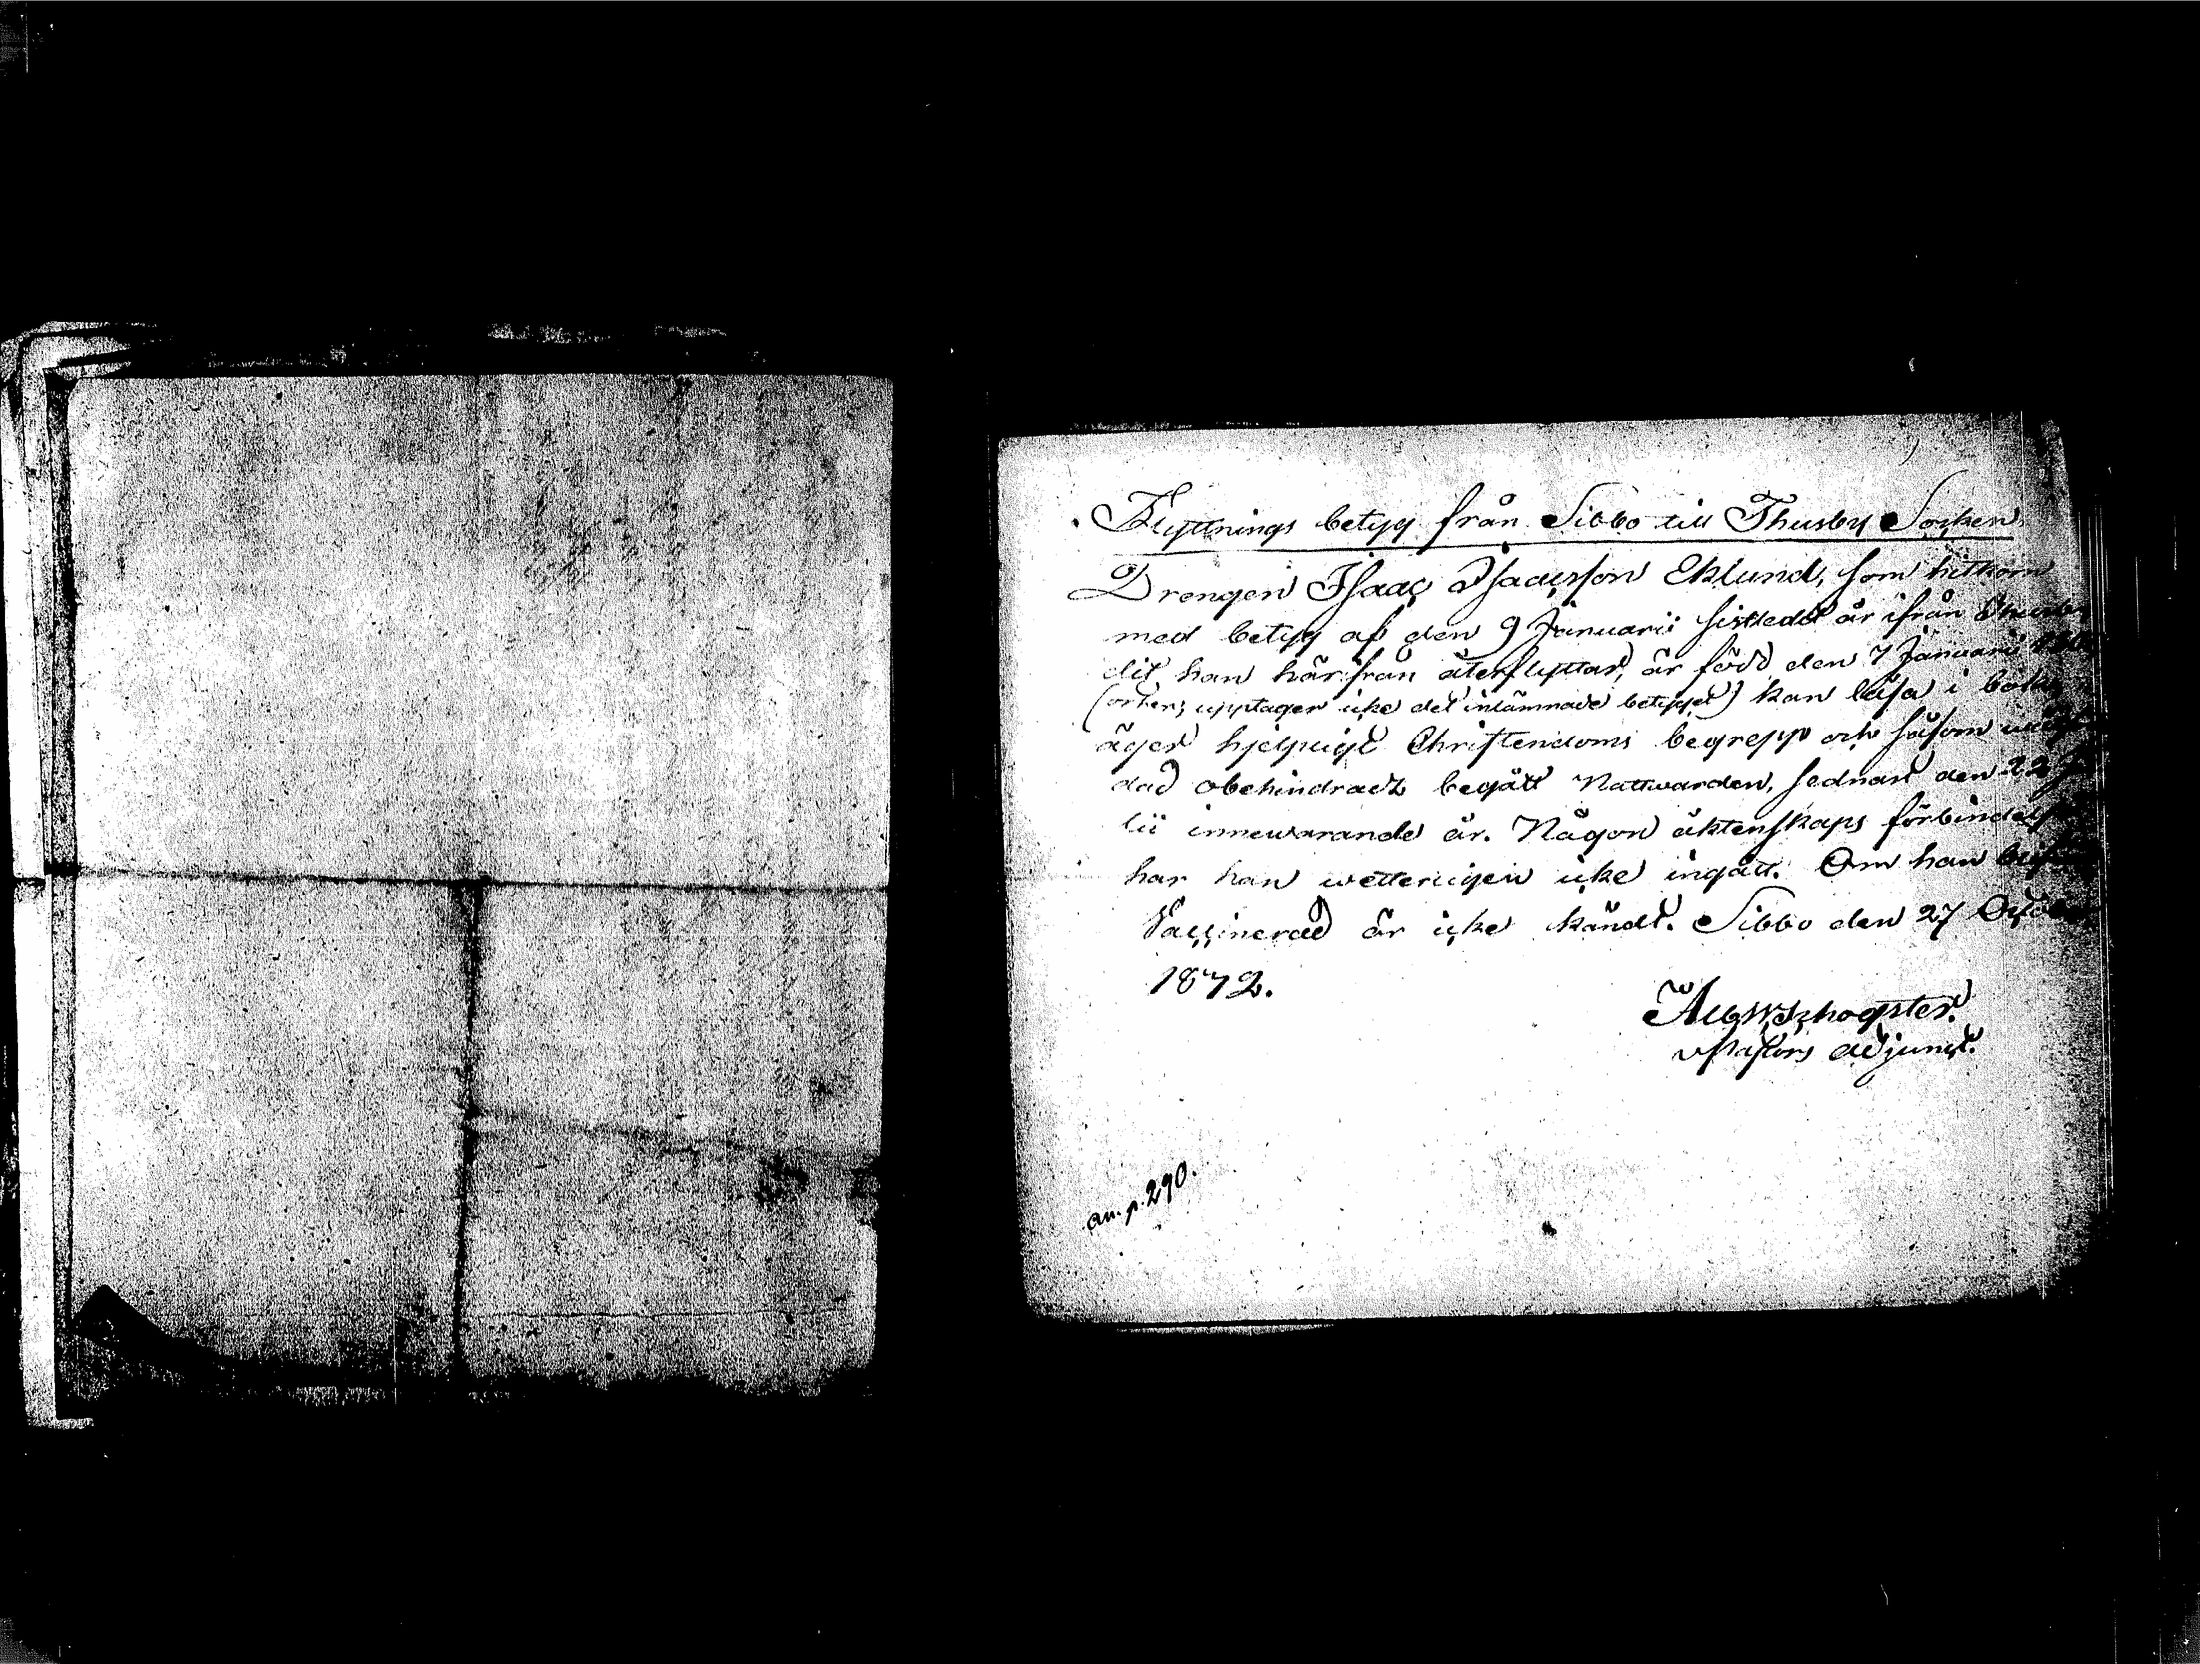 Flyttnings betyg från Sibbo till Thusby Socken.
Drengen Isaac Isacsson Eklund, som hitkom
med betyg af den 9 Januarii sistledet år ifrån Thusby
dit han härifrån återflyttar, är född den 7 Januarii
(orten upptager icke det inlämnade betyget) kan läsa i bok
äger hjelpligt Christendoms begrepp och såsom
dad obehindradt begått Nattwarden, sednast den 22
lii innewarande år. Någon äktenskaps förbindelse
har han wetterligen icke ingått. Om han
Vaccinerad är icke kändt. Sibbo den 27 October
1872.
v Pastors adjunct.
an. p. 290.